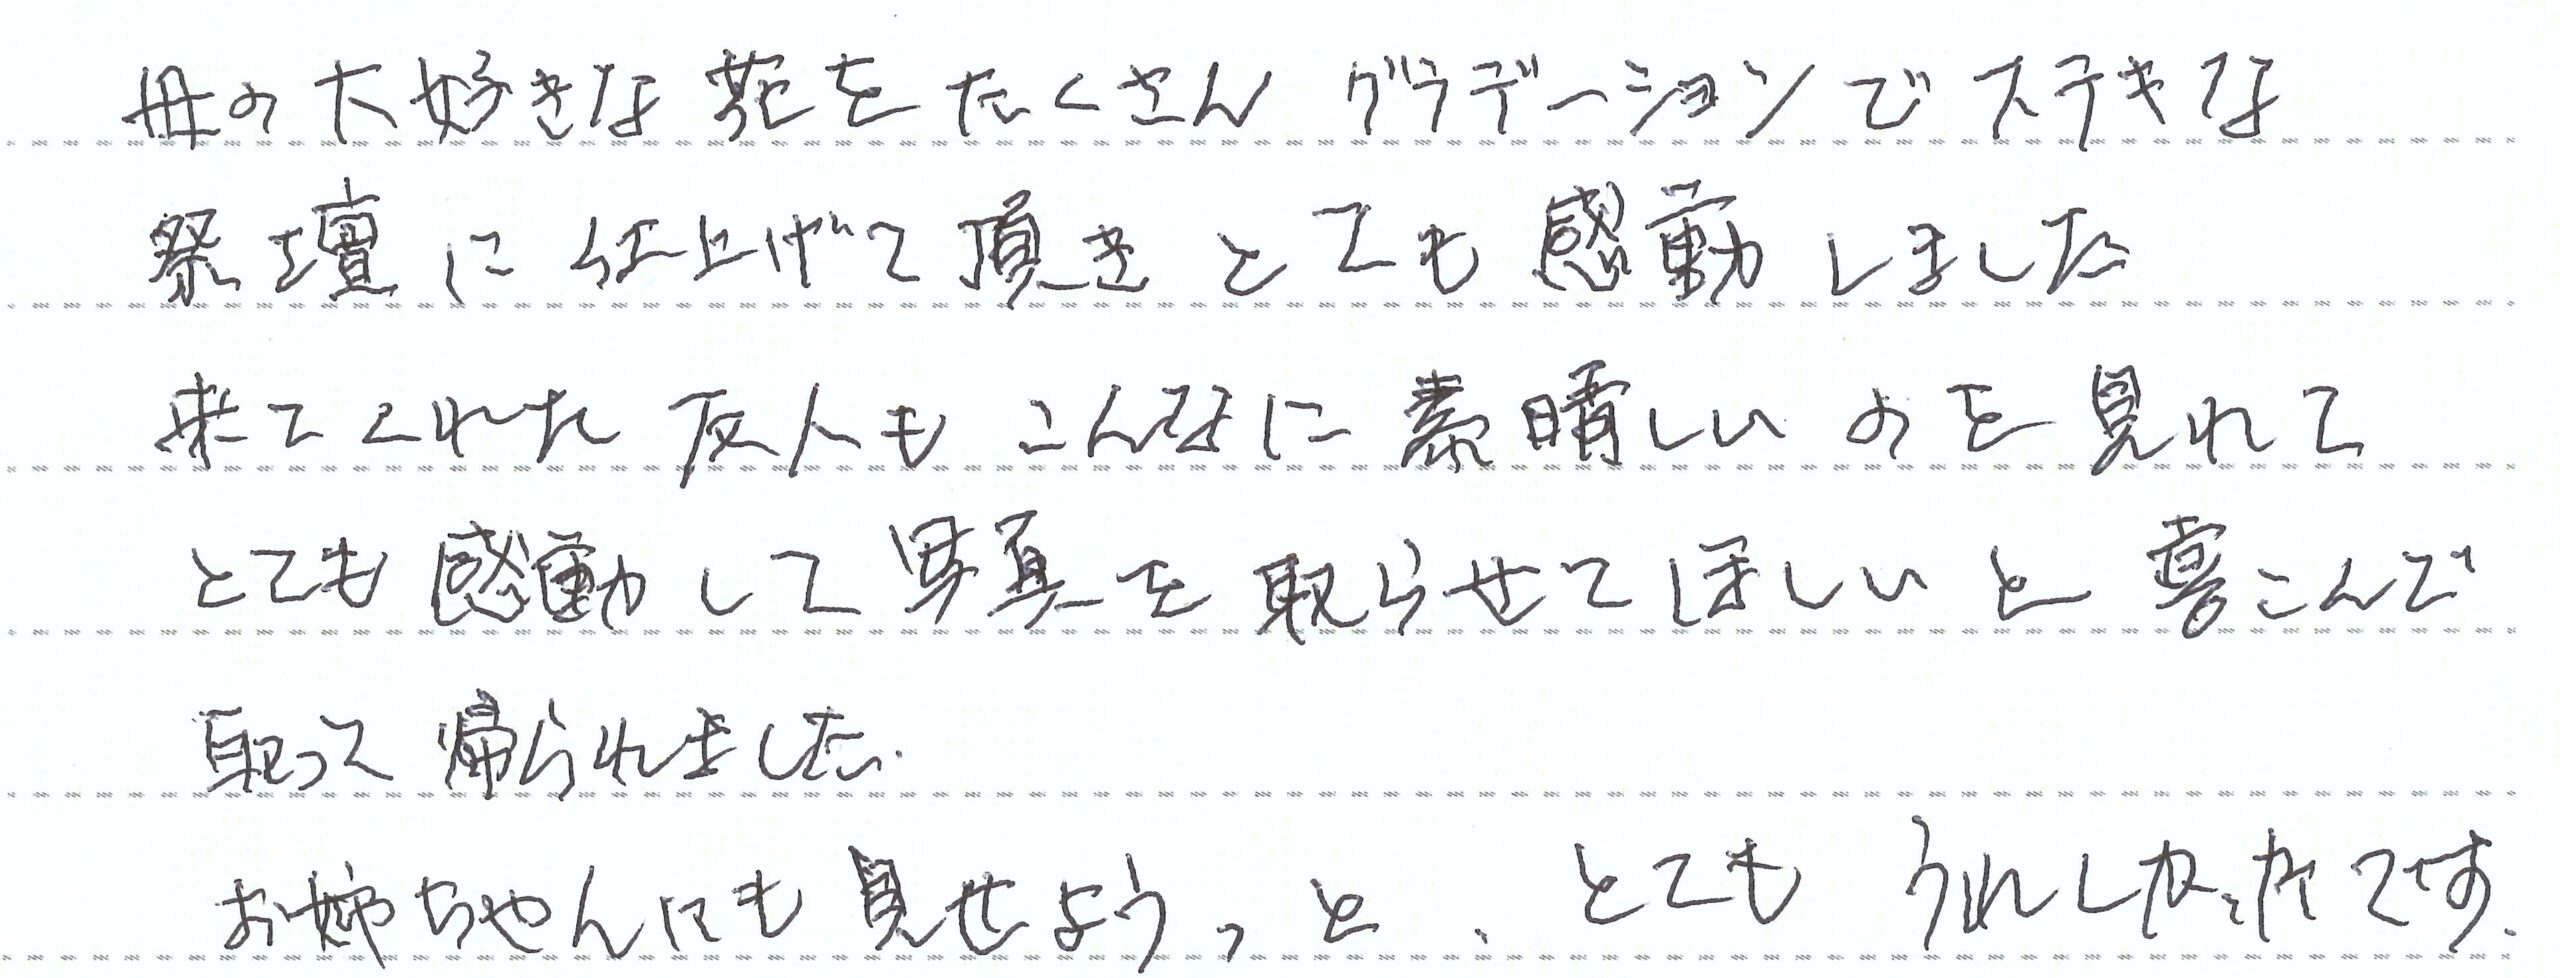 母の大好きな花をたくさん グラデーションでステキな
祭壇に仕上げて頂きとても感動しました
来てくれた友人もこんなに素晴しいのを見れて
とても感動して写真を取らせてほしいと喜こんで
取って帰られました.
お姉ちゃんにも見せようっと、とてもうれしかったです.